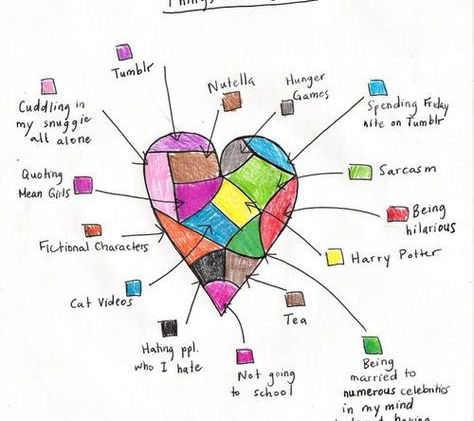 Things
Tumblr
Nutella
Hunger
Games
Cuddling in
my snuggie
all alone
Spending Friday
nite on Tumblr
Quoting
Mean Girls
Sarcasm
Being
hilarious
Fictional Characters
Harry Potter
Cat Videos
Tea
Hating ppl.
who I hate
Not going
to school
Being
married to
numerous celebrities
in my mind
having